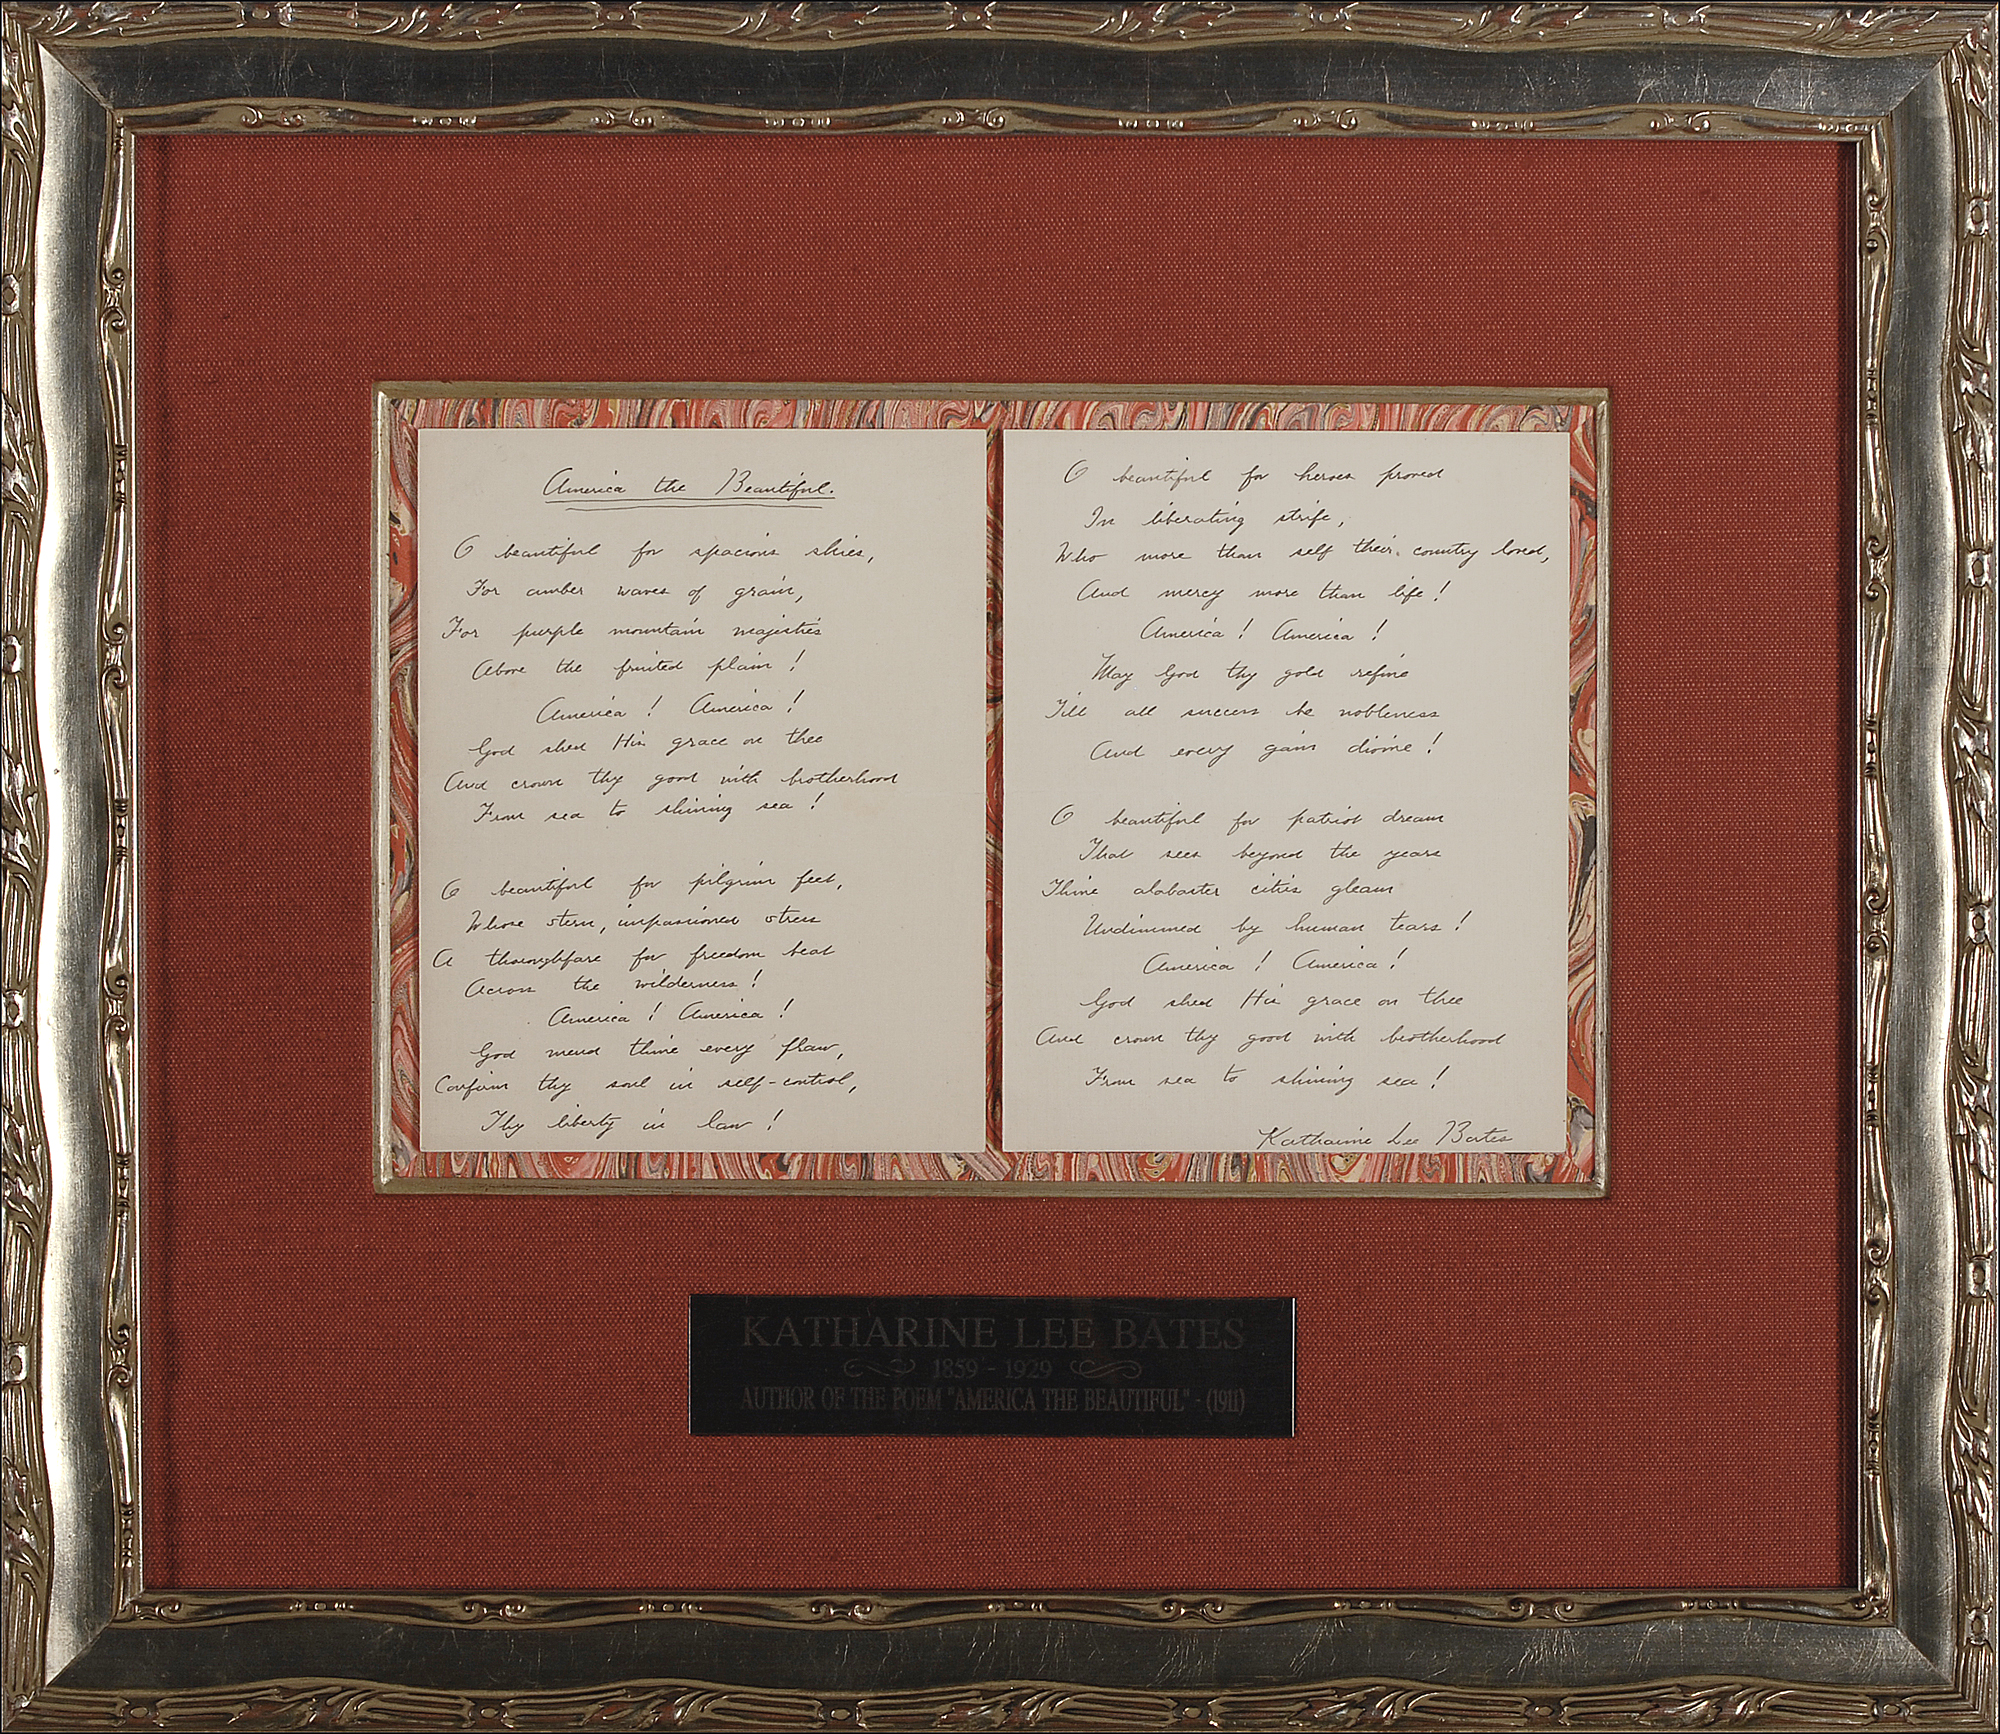 America the Beautiful.
O beautiful for spacious skies,
For amber waves of grain,
For purple mountain majesties
Above the fruited plain!
America! America!
God shed His grace on thee
And crown thy good with brotherhood
From sea to shining sea!
O beautiful for pilgrim feet,
Whose stern, impassioned stress
A thoroughfare for freedom beat
Across the wilderness!
America! America!
God mend thine every flaw,
Confirm thy soul in self-control,
Thy liberty in law!
O beautiful for heroes proved
In liberating strife,
Who more than self their country loved,
And mercy more than life!
America! America!
May God thy gold refine
Till all success be nobleness
And every gain divine!
O beautiful for patriot dream
That sees beyond the years
Thine alabaster cities gleam
Undimmed by human tears!
America! America!
God shed His grace on thee
And crown thy good with brotherhood
From sea to shining sea!
Katharine Lee Bates
KATHARINE LEE BATES
1859 - 1929
AUTHOR OF THE POEM "AMERICA THE BEAUTIFUL" - (1911)